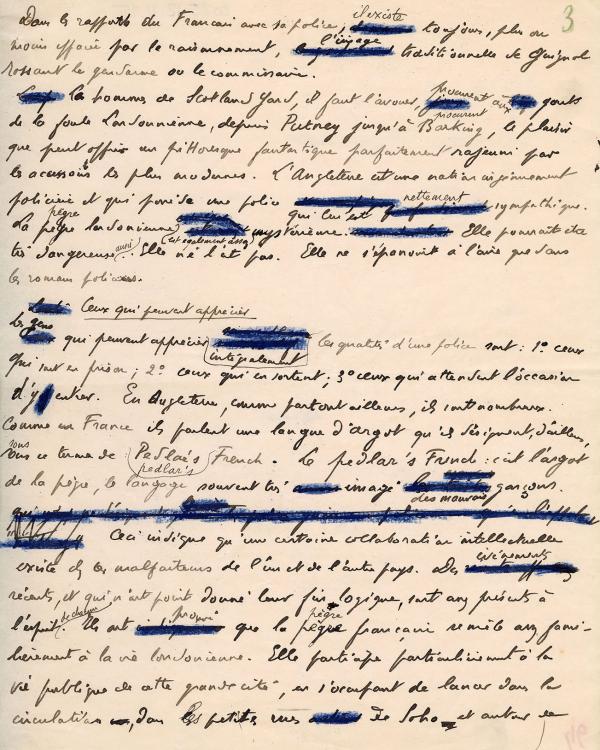 3
Dans les rapports du Français avec sa police, il existe toujours, plus ou
moins effacé par le raisonnement, l'image traditionnelle de Guignol
rossant le gendarme ou le commissaire.
les hommes de Scotland Yard, il faut l'avouer, procurent aux gouts
procurent
de la foule Londonienne, depuis Putney jusqu'à Barking, le plaisir
que peut offrir un pittoresque fantastique parfaitement rajeuni par
les accessoires les plus modernes. L'Angleterre est une nation
policière et qui possède une police qui lui est nettement sympathique.
La pègre londonienne est également assez mystérieuse. Elle pourrait être
très dangereuse aussi. Elle ne l'est pas. Elle ne s'épanouit à l'aise que dans
les romans policiers.
Ceux qui peuvent apprécier
Les gens
qui peuvent apprécier intégralement les qualités d'une police sont : 1º ceux
qui sont en prison ; 2º ceux qui en sortent ; 3º ceux qui attendent l'occasion
d'y entrer. En Angleterre, comme partout ailleurs, ils sont nombreux.
Comme en France ils parlent une langue d'argot qu'ils désignent, d'ailleurs,
sous ce terme de Pedlar's French. Le pedlar's French : c'est l'argot
pedlar's
de la pègre, le langage souvent très imagé des mauvais garçons.
Ceci indique qu'une certaine collaboration intellectuelle
existe chez les malfaiteurs de l'un et de l'autre pays. Des événements
récents, et qui n'ont point donné leur fin logique, sont assez présents à
l'esprit de chacun. Ils ont prouvé que la pègre française se mêle assez fami-
lièrement à la vie londonienne. Elle participe particulièrement à la
vie publique de cette grande cité, en s'occupant de lancer dans la
circulation, dans les petites rues de Soho et autour de